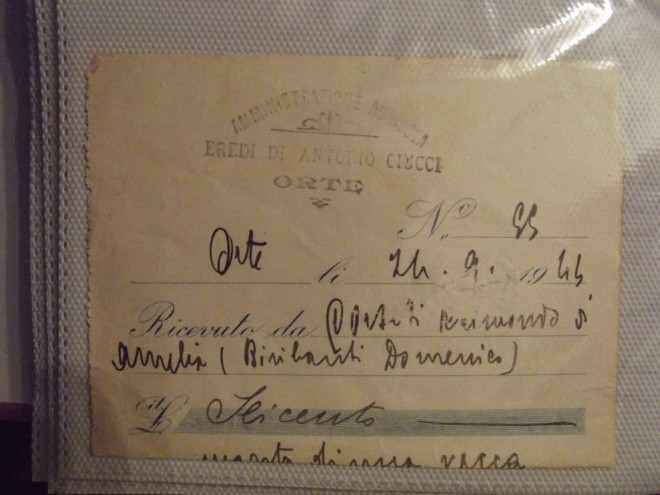 AMMINISTRAZIONE AGRICOLA
EREDI DI ANTONIO CIUCCI
ORTE
N.o 55
Orte li 24. 9. 1944
Ricevuto da Raimondo di
Amelia ( Domenico)
It. L. Seicento
di una vacca